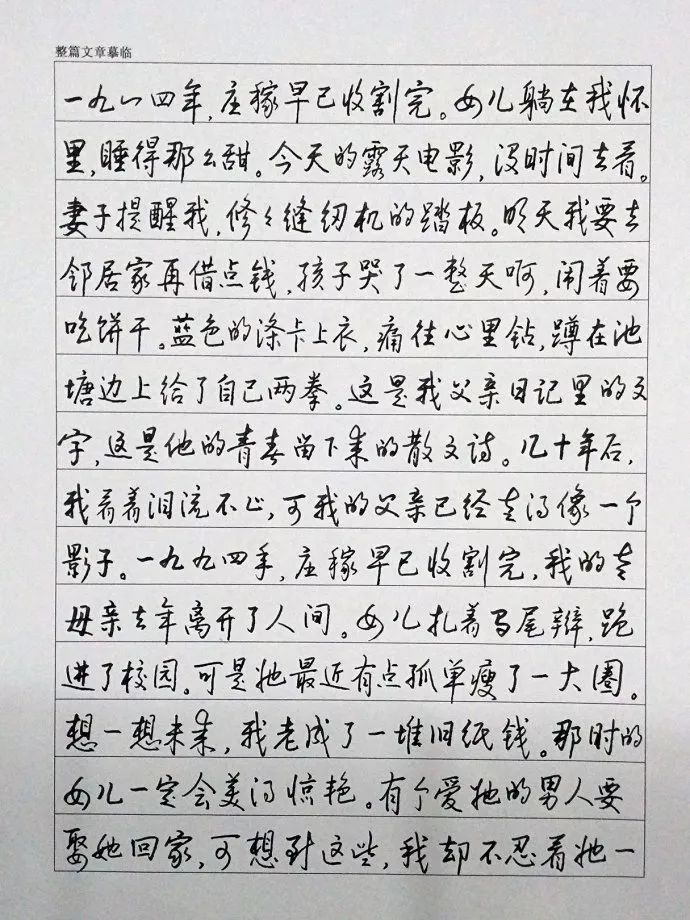 整篇文章摹临
一九八四年,庄稼早已收割完。女儿躺在我怀
里,睡得那么甜。今天的露天电影,没时间去看。
妻子提醒我,修々缝纫机的踏板。明天我要去
邻居家再借点钱,孩子哭了一整天啊,闹着要
吃饼干。蓝色的涤卡上衣,痛往心里钻,蹲在池
塘边上给了自己两拳。这是我父亲日记里的文
字,这是他的青春留下来的散文诗。几十年后,
我看着泪流不止,可我的父亲已经老得像一个
影子。一九九四年,庄稼早已收割完,我的老
母亲去年离开了人间。女儿扎着马尾辫,跑
进了校园。可是她最近有点孤单瘦了一大圈。
想一想未来,我老成了一堆旧纸钱。那时的
女儿一定会美得惊艳。有个爱她的男人要
娶她回家,可想到这些,我却不忍看她一